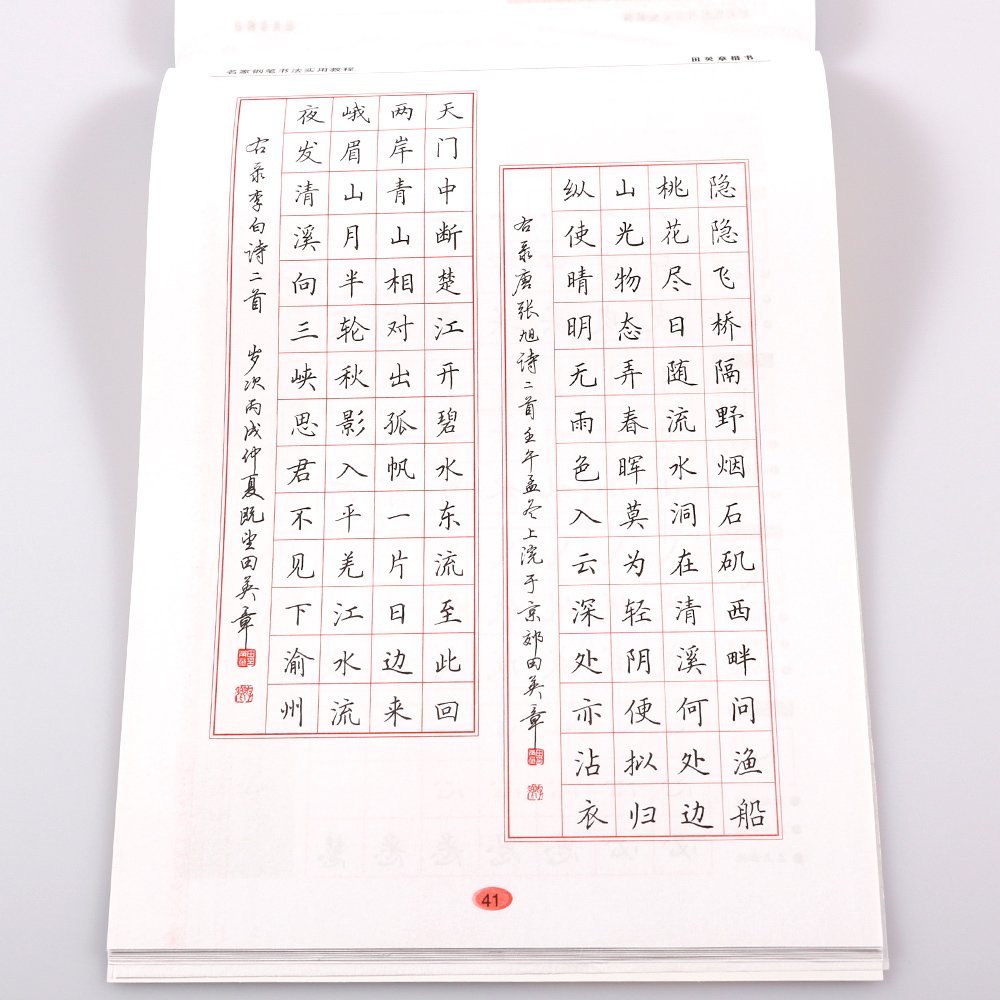 名家钢笔书法实用教程
田英章楷书
隐隐飞桥隔野烟石矶西畔问渔船
桃花尽日随流水洞在清溪何处边
山光物态弄春晖莫为轻阴便拟归
纵使晴明无雨色入云深处亦沾衣
右录唐张旭诗二首壬午孟冬上浣于京郊田英章
天门中断楚江开碧水东流至此回
两岸青山相对出孤帆一片日边来
峨眉山月半轮秋影入平羌江水流
夜发清溪向三峡思君不见下渝州
右录李白诗二首 岁次丙戌仲夏既望田英章
41